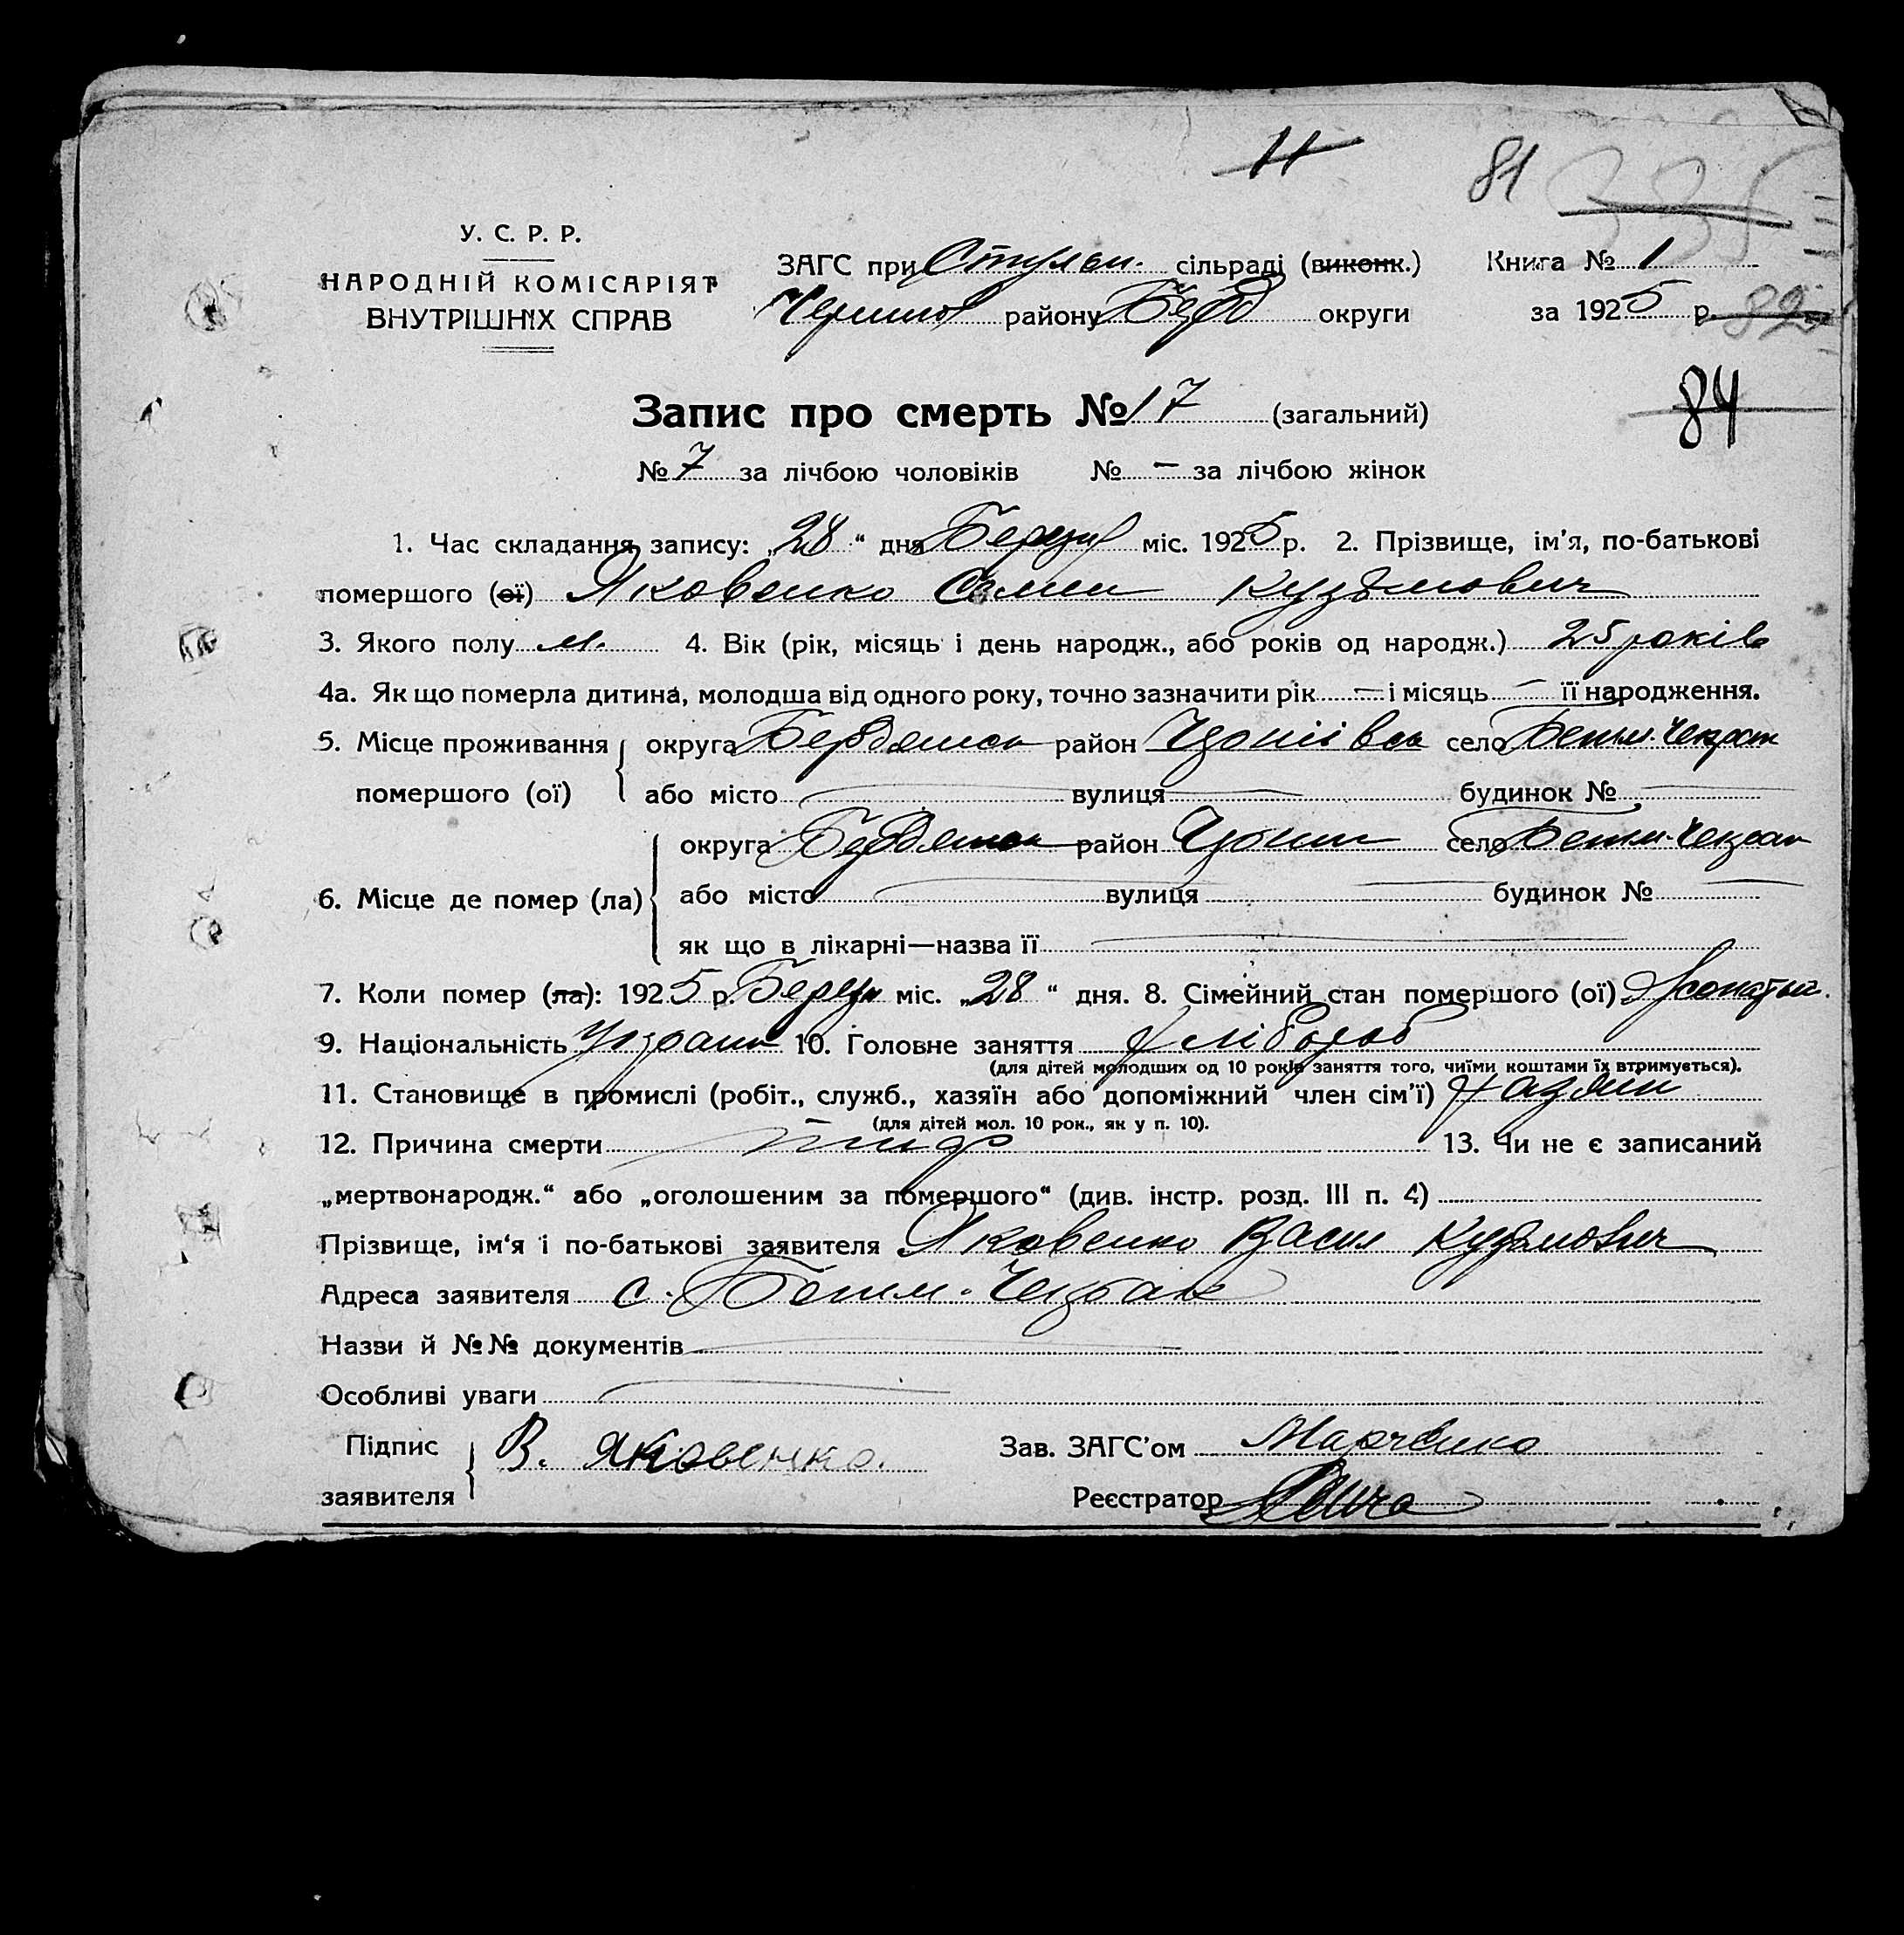 11
81
335
У. С. Р. Р.
НАРОДНІЙ КОМІСАРІЯТ
ВНУТРІШНІХ СПРАВ
ЗАГС при сільраді (виконк.)
району Берд округи
Книга № 1
за 1925 р.
82
84
Запис про смерть № 17 (загальний)
№ 7 за лічбою чоловіків № — за лічбою жінок
1. Час складання запису: „28“ дня Березн міс. 1925 р. 2. Прізвище, ім’я, по-батькові
помершого (ої) Яковенко Семен Кузьмович
3. Якого полу м. 4. Вік (рік, місяць і день народж., або років од народж.) 25 років
4а. Як що померла дитина, молодша від одного року, точно зазначити рік — і місяць — її народження.
5. Місце проживання помершого (ої)
округа Бердянськ район село
або місто вулиця будинок №
6. Місце де помер (ла)
округа Бердянськ район село
або місто вулиця будинок №
як що в лікарні—назва її
7. Коли помер (ла): 1925 р. Березн міс. „28“ дня. 8. Сімейний стан помершого (ої) Жонатый.
9. Національність Україн 10. Головне заняття Хлібороб
(для дітей молодших од 10 років заняття того, чиїми коштами їх втримується).
11. Становище в промислі (робіт., служб., хазяїн або допоміжний член сім’ї) Хазяин
(для дітей мол. 10 рок., як у п. 10).
12. Причина смерти тиф 13. Чи не є записаний
„мертвонародж.“ або „оголошеним за помершого“ (див. інстр. розд. III п. 4)
Прізвище, ім‘я і по-батькові заявителя Яковенко Васил Кузьмович
Адреса заявителя с.
Назви й №№ документів
Особливі уваги
Підпис заявителя В. Яковенко.
Зав. ЗАГС’ом Марченко
Реєстратор